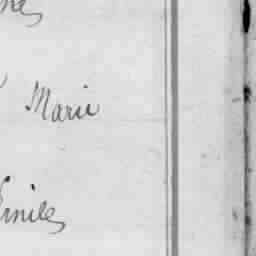 Marie
Emile